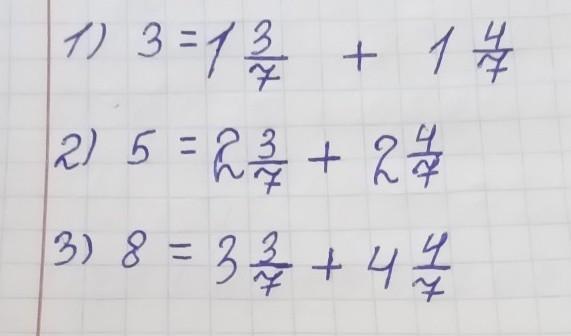 1) 3 = 1 3/7 + 1 4/7
2) 5 = 2 3/7 + 2 4/7
3) 8 = 3 3/7 + 4 4/7